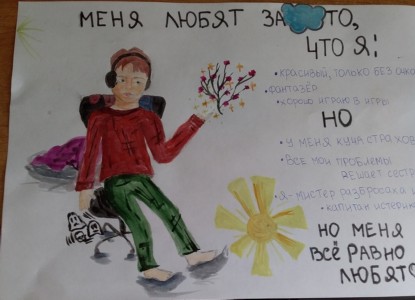 МЕНЯ ЛЮБЯТ ЗА ТО,
ЧТО Я:
• красивый, только без очков
• фантазёр
• хорошо играю в игры
НО
• У МЕНЯ КУЧА СТРАХОВ
• ВСЕ МОИ ПРОБЛЕМЫ
РЕШАЕТ СЕСТРА
• Я - МИСТЕР РАЗБРОСАХА
• КАПИТАН ИСТЕРИКА
НО МЕНЯ
ВСЁ РАВНО
ЛЮБЯТ